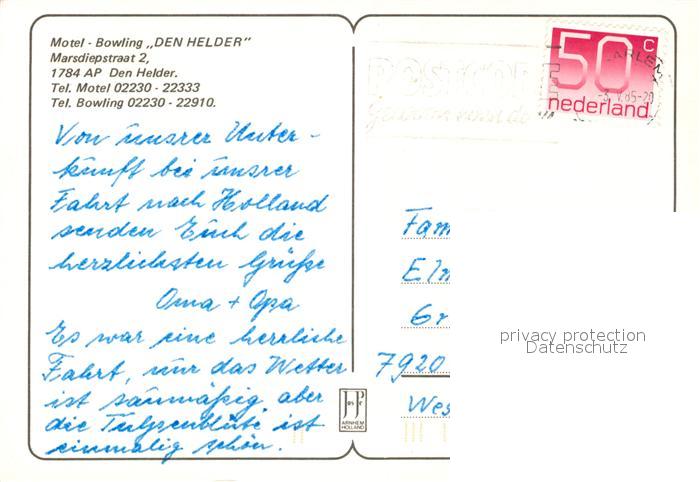 Motel - Bowling „DEN HELDER"
Marsdiepstraat 2,
1784 AP Den Helder.
Tel. Motel 02230 - 22333
Tel. Bowling 02230 - 22910.
Von unsrer Unter-
kunft bei unsrer
Fahrt nach Holland
senden Euch die
herzlichsten Grüße
Oma + Opa
Es war eine herrliche
Fahrt, nur das Wetter
ist saumäßig aber
die Tulpenblüte ist
einmalig schön.
50 c
nederland
POSTCODE
Fam
Elm
Gr
7920
Wes
privacy protection
Datenschutz
ARNHEM
HOLLAND